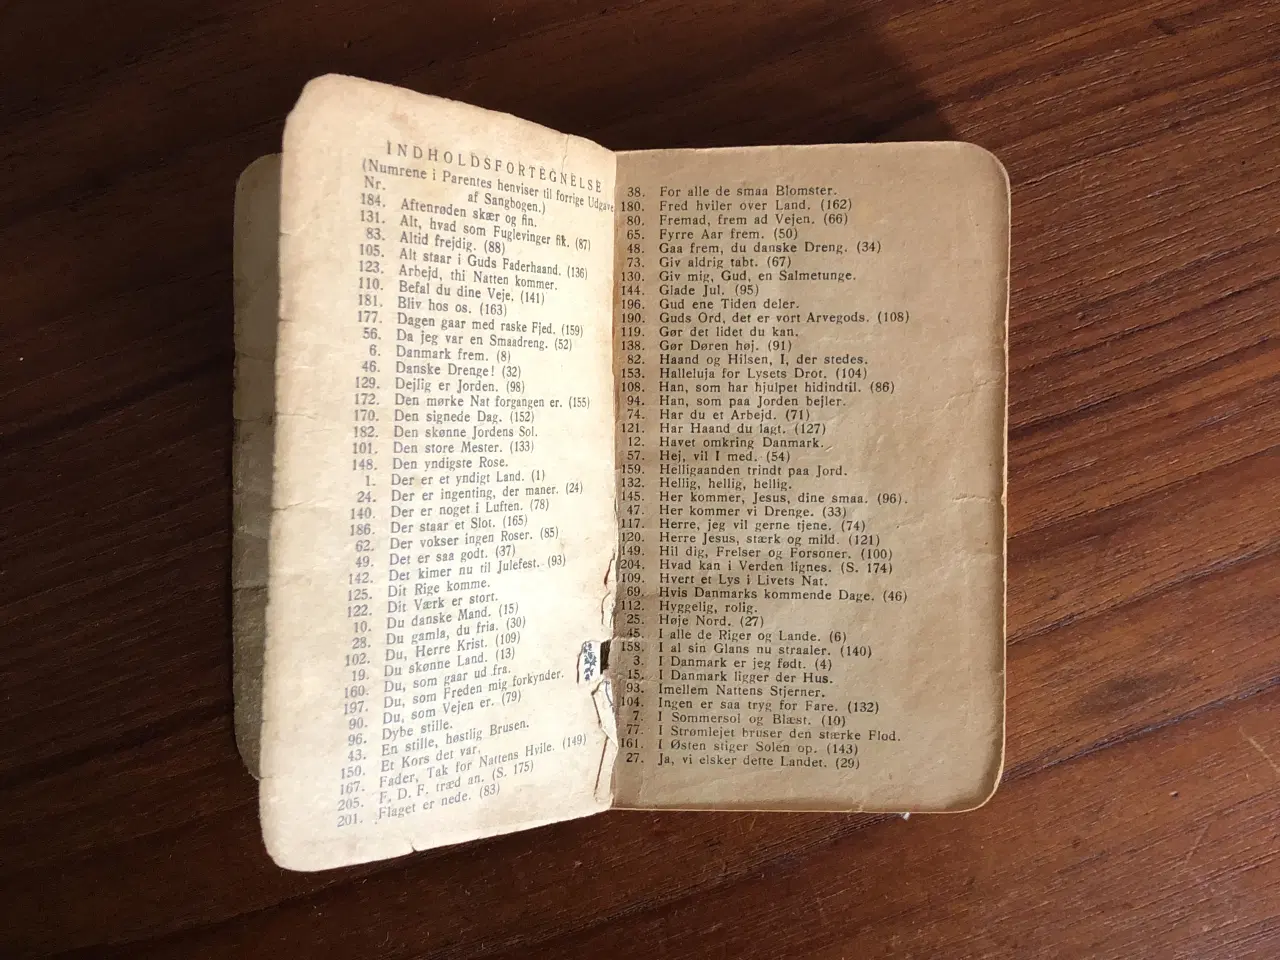 INDHOLDSFORTEGNELSE
(Numrene i Parentes henviser til forrige Udgave
Nr. af Sangbogen.)
184. Aftenrøden skær og fin.
131. Alt, hvad som Fuglevinger fik. (87)
83. Altid frejdig. (88)
105. Alt staar i Guds Faderhaand. (136)
123. Arbejd, thi Natten kommer.
110. Befal du dine Veje. (141)
181. Bliv hos os. (163)
177. Dagen gaar med raske Fjed. (159)
56. Da jeg var en Smaadreng. (52)
6. Danmark frem. (8)
46. Danske Drenge! (32)
129. Dejlig er Jorden. (98)
172. Den mørke Nat forgangen er. (155)
170. Den signede Dag. (152)
182. Den skønne Jordens Sol.
101. Den store Mester. (133)
148. Den yndigste Rose.
1. Der er et yndigt Land. (1)
24. Der er ingenting, der maner. (24)
140. Der er noget i Luften. (78)
186. Der staar et Slot. (165)
62. Der vokser ingen Roser. (85)
49. Det er saa godt. (37)
142. Det kimer nu til Julefest. (93)
125. Dit Rige komme.
122. Dit Værk er stort.
10. Du danske Mand. (15)
28. Du gamla, du fria. (30)
102. Du, Herre Krist. (109)
19. Du skønne Land. (13)
160. Du, som gaar ud fra.
197. Du, som Freden mig forkynder.
90. Du, som Vejen er. (79)
96. Dybe stille.
43. En stille, høstlig Brusen.
150. Et Kors det var.
167. Fader, Tak for Nattens Hvile. (149)
205. F. D. F. træd an. (S. 175)
201. Flaget er nede. (83)
38. For alle de smaa Blomster.
180. Fred hviler over Land. (162)
80. Fremad, frem ad Vejen. (66)
65. Fyrre Aar frem. (50)
48. Gaa frem, du danske Dreng. (34)
73. Giv aldrig tabt. (67)
130. Giv mig, Gud, en Salmetunge.
144. Glade Jul. (95)
196. Gud ene Tiden deler.
190. Guds Ord, det er vort Arvegods. (108)
119. Gør det lidet du kan.
138. Gør Døren høj. (91)
82. Haand og Hilsen, I, der stedes.
153. Halleluja for Lysets Drot. (104)
108. Han, som har hjulpet hidindtil. (86)
94. Han, som paa Jorden bejler.
74. Har du et Arbejd. (71)
121. Har Haand du lagt. (127)
12. Havet omkring Danmark.
57. Hej, vil I med. (54)
159. Helligaanden trindt paa Jord.
132. Hellig, hellig, hellig.
145. Her kommer, Jesus, dine smaa. (96).
47. Her kommer vi Drenge. (33)
117. Herre, jeg vil gerne tjene. (74)
120. Herre Jesus, stærk og mild. (121)
149. Hil dig, Frelser og Forsoner. (100)
204. Hvad kan i Verden lignes. (S. 174)
109. Hvert et Lys i Livets Nat.
69. Hvis Danmarks kommende Dage. (46)
112. Hyggelig, rolig.
25. Høje Nord. (27)
45. I alle de Riger og Lande. (6)
158. I al sin Glans nu straaler. (140)
3. I Danmark er jeg født. (4)
15. I Danmark ligger der Hus.
93. Imellem Nattens Stjerner.
104. Ingen er saa tryg for Fare. (132)
7. I Sommersol og Blæst. (10)
77. I Strømlejet bruser den stærke Flod.
161. I Østen stiger Solen op. (143)
27. Ja, vi elsker dette Landet. (29)